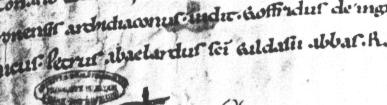 onensis archidiaconus. iudic. Goffridus de ingr
nicus. Petrus abaelardus sci Gildasii abbas. R.